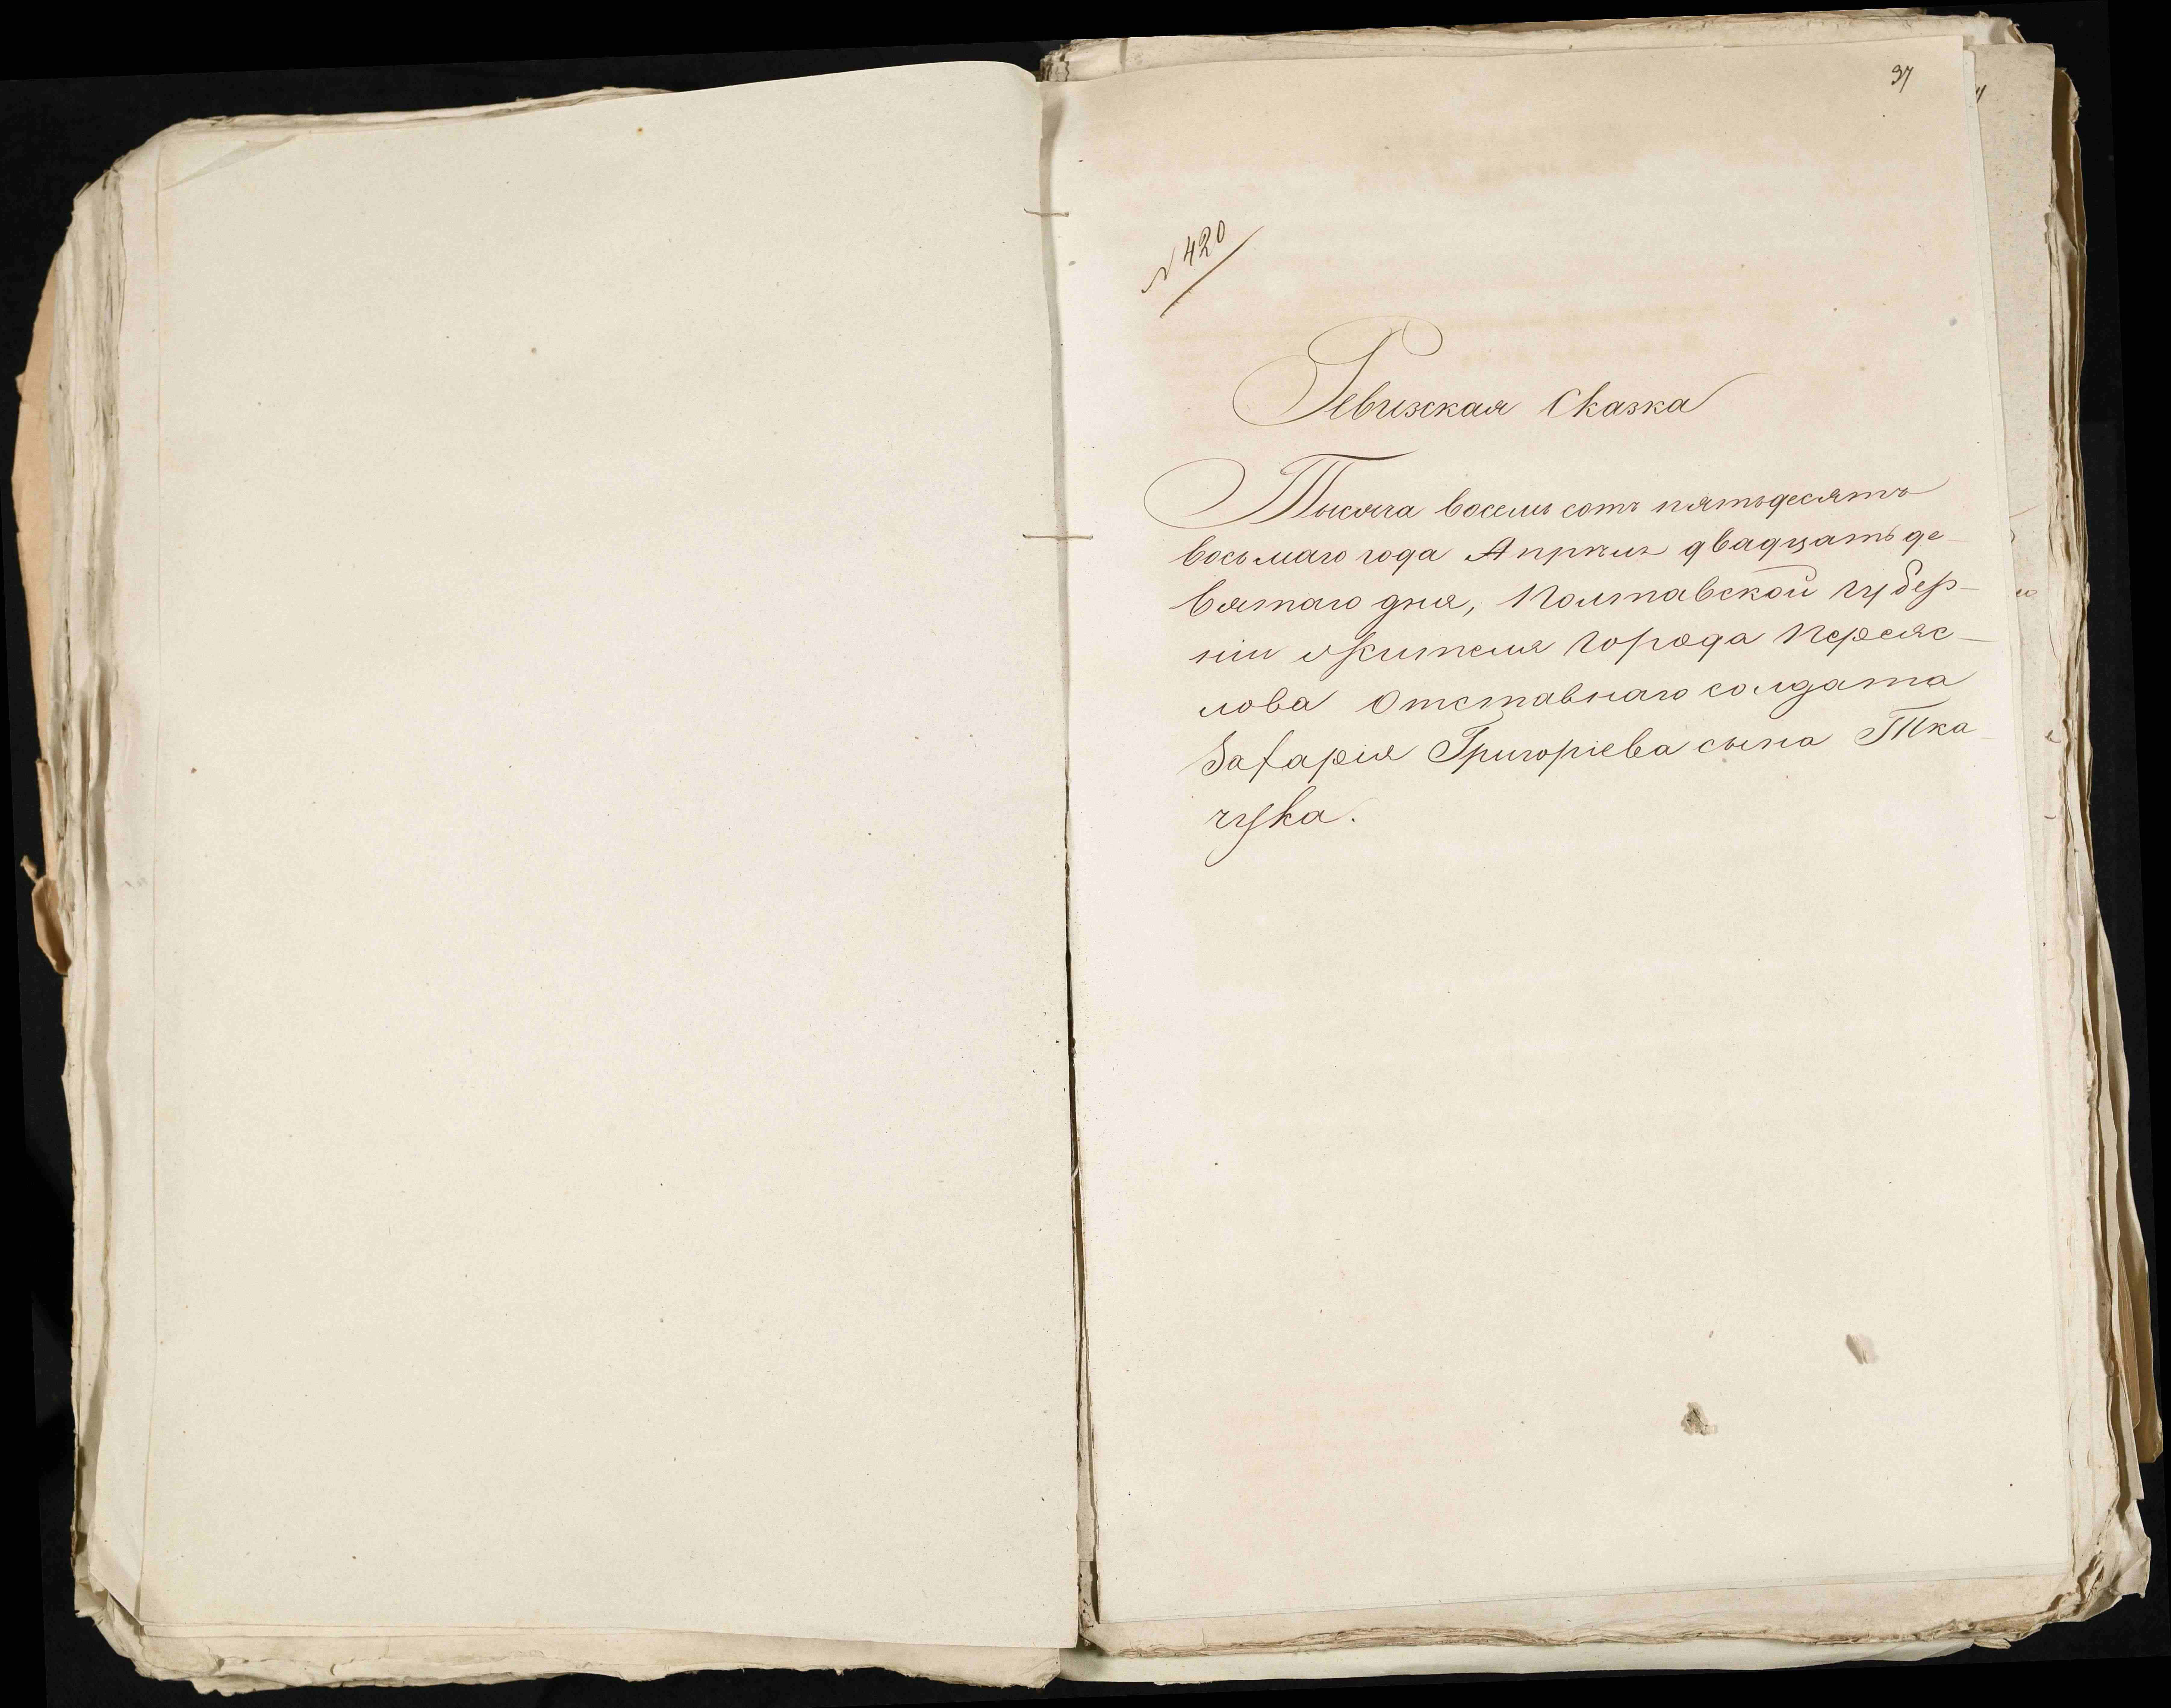 37
№ 420
Ревизская Сказка
Тысяча восемь сотъ пятьдесятъ
восьмаго года Апрѣля двадцать де-
вятаго дня, Полтавской губер-
ніи Жителя города Переяс-
лова Отставнаго солдата
Захарія Григоріева сына Тка-
чука.